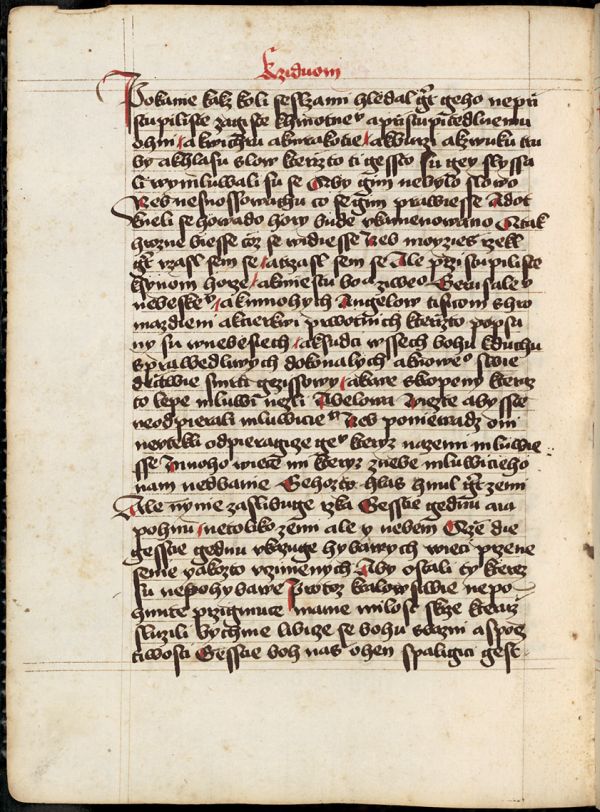 K ziduom
Pokanie kakz koli seslzami hledal gt geho nepri
stupiliste zagiste khmotne a pristupitedlnemu
ohni a kwichru a kmrakotie a kburzi a kzwuku tru
by a khlasu slow kterzto ti gessto su gey slyssa
li wymluwali su se Aby gim nebylo slowo
Neb nesnossowachu co segim prawiesse A dot
kneli se howado hory bude vkamenowano A tak
hrozne biesse coz se widiesse Neb moyzies rzekl
gt vzasl sem se a trzasl sem se Ale pristupiliste
ksyonom horze a kmiestu boha ziweo Gerusale v
nebeske a kmnohych Angelow tisicom shro
mazdieni a kcierkwi prwotnich kterzto popsa
ny su wnebesiech a ksudci wssech bohu kduchu
sprawedliwych dokonalych a knowe swie
dectwie smrti gezissowy a krwe skropeny kteraz
to lepe mluwi nezli Abelowa Wizte abysste
neodpierali mluwiciemu Neb poniewadz oni
neutekli odpieragize geo keryz nazemi mluwie
sse Mnoho wiece mi kteryz znebe mluwicieho
nam nedbame Gehozto hlas hnul gt zemi
Ale nynie zaslibuge rzka Gesscie gednu a ia
pohnu netoliko zemi ale y nebem A ze die
gesscie gednu vkazuge hybawych wieci przene
senie yakozto vczinenych Aby ostali ty kterez
su nepohybawe Protoz kralowstwie nepo
hnute przigimuce mame milost skrze kteruz
sluzili bychme libieze se bohu sbazni a spocz
tiwosti Gesstie boh nas ohen spaligici gest